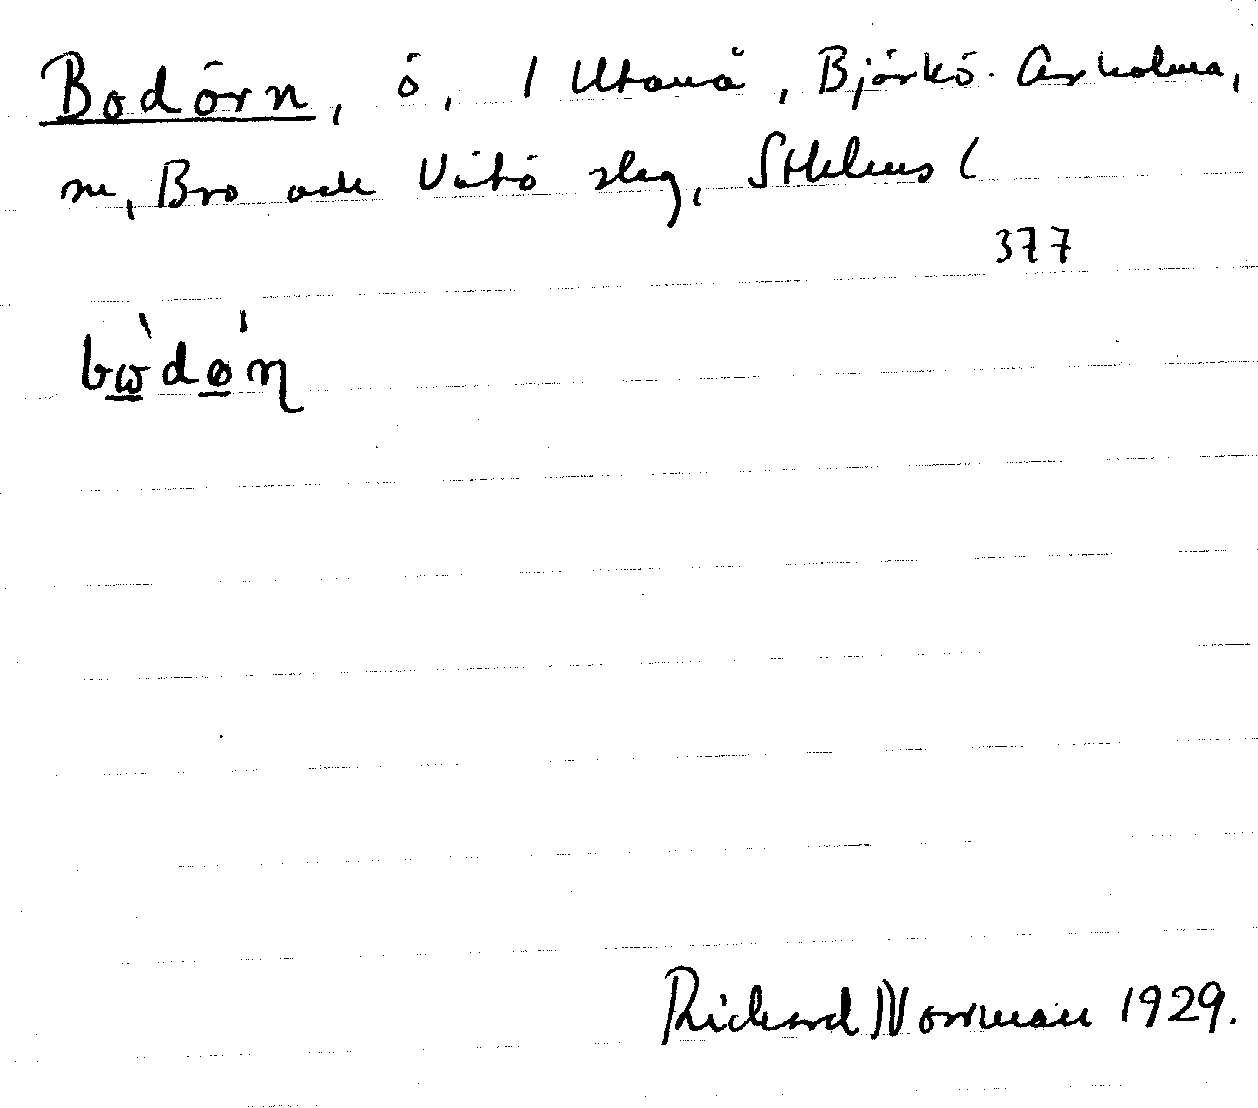 Bodörn, ö, / Utanå, Björkö-Arholma,
sn, Bro och Vätö slag, Sthlms (
377
bὼ̲dǿ̲ɳ
Richard Norrman 1929.